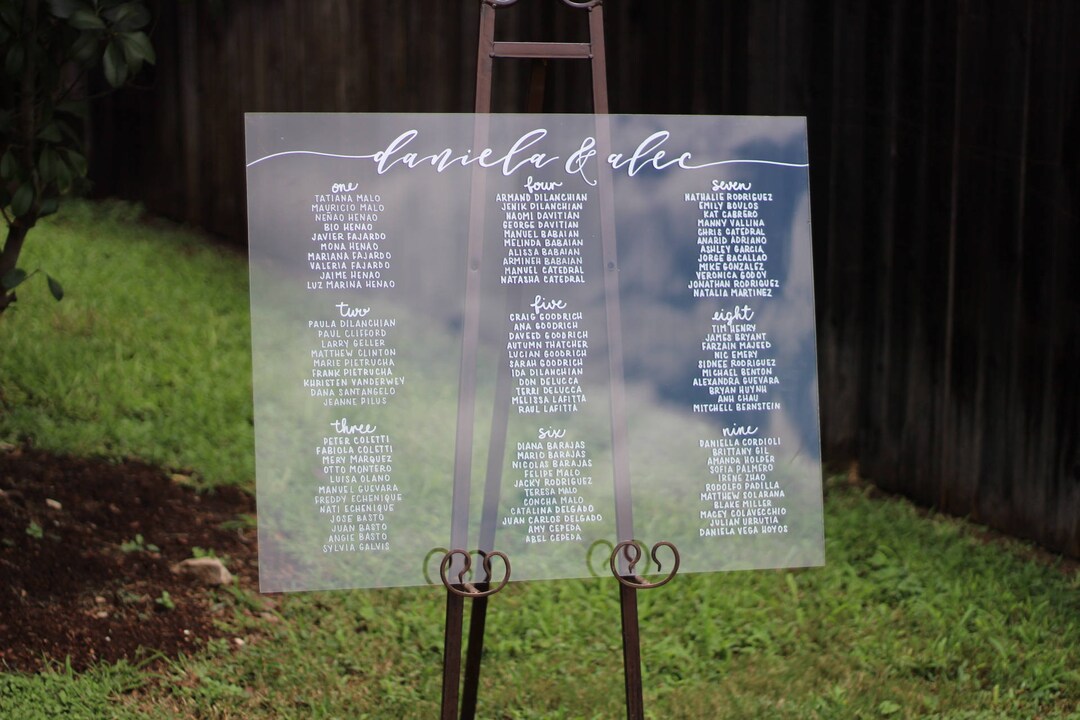 daniela & alec
one
TATIANA MALO
MAURICIO MALO
NEÑAO HENAO
BIO HENAO
JAVIER FAJARDO
MONA HENAO
MARIANA FAJARDO
VALERIA FAJARDO
JAIME HENAO
LUZ MARINA HENAO
two
PAULA DILANCHIAN
PAUL CLIFFORD
LARRY GELLER
MATTHEW CLINTON
MARIE PIETRUCHA
FRANK PIETRUCHA
KHRISTEN VANDERWEY
DANA SANTANGELO
JEANNE PILUS
three
PETER COLETTI
FABIOLA COLETTI
MERY MARQUEZ
OTTO MONTERO
LUISA OLANO
MANUEL GUEVARA
FREDDY ECHENIQUE
NATI ECHENIQUE
JOSE BASTO
JUAN BASTO
ANGIE BASTO
SYLVIA GALVIS
four
ARMAND DILANCHIAN
JENIK DILANCHIAN
NAOMI DAVITIAN
GEORGE DAVITIAN
MANUEL BABAIAN
MELINDA BABAIAN
ALISSA BABAIAN
ARMINEH BABAIAN
MANUEL CATEDRAL
NATASHA CATEDRAL
five
CRAIG GOODRICH
ANA GOODRICH
DAVEED GOODRICH
AUTUMN THATCHER
LUCIAN GOODRICH
SARAH GOODRICH
IDA DILANCHIAN
DON DELUCCA
TERRI DELUCCA
MELISSA LAFITTA
RAUL LAFITTA
six
DIANA BARAJAS
MARIO BARAJAS
NICOLAS BARAJAS
FELIPE MALO
JACKY RODRIGUEZ
TERESA MALO
CONCHA MALO
CATALINA DELGADO
JUAN CARLOS DELGADO
AMY CEPEDA
ABEL CEPEDA
seven
NATHALIE RODRIGUEZ
EMILY BOULOS
KAT CABRERO
MANNY VALLINA
CHRIS CATEDRAL
ANARID ADRIANO
ASHLEY GARCIA
JORGE BACALLAO
MIKE GONZALEZ
VERONICA GODOY
JONATHAN RODRIGUEZ
NATALIA MARTINEZ
eight
TIM HENRY
JAMES BRYANT
FARZAIN MAJEED
NIC EMERY
SIDNEE RODRIGUEZ
MICHAEL BENTON
ALEXANDRA GUEVARA
BRYAN HUYNH
ANH CHAU
MITCHELL BERNSTEIN
nine
DANIELLA CORDIOLI
BRITTANY GIL
AMANDA HOLDER
SOFIA PALMERO
IRENE ZHAO
RODOLFO PADILLA
MATTHEW SOLARANA
BLAKE MILLER
MACEY COLAVECCHIO
JULIAN URRUTIA
DANIELA VEGA HOYOS